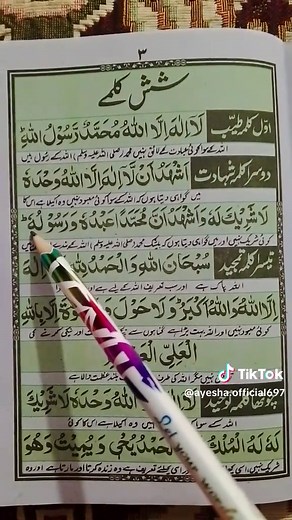 ۳
شش کلمے
اوّل کلمہ طیّب لَآ اِلٰهَ اِلَّا اللّٰهُ مُحَمَّدٌ رَّسُوْلُ اللّٰهِ
اللہ کے سوا کوئی عبادت کے لائق نہیں محمد (صلی اللہ علیہ وسلم) اللہ کے رسول ہیں
دوسرا کلمہ شہادت اَشْهَدُ اَنْ لَّآ اِلٰهَ اِلَّا اللّٰهُ وَحْدَهٗ
میں گواہی دیتا ہوں کہ اللہ کے سوا کوئی معبود نہیں وہ اکیلا ہے اس کا
لَا شَرِيْكَ لَهٗ وَاَشْهَدُ اَنَّ مُحَمَّدًا عَبْدُهٗ وَرَسُوْلُهٗ
کوئی شریک نہیں اور میں گواہی دیتا ہوں کہ بیشک محمد (صلی اللہ علیہ وسلم) اللہ کے بندے
تیسرا کلمہ تمجید سُبْحَانَ اللّٰهِ وَالْحَمْدُ لِلّٰهِ اِلٰهَ
اللہ پاک ہے اور سب تعریف اللہ کے لیے ہے اور
اِلَّا اللّٰهُ وَاللّٰهُ اَكْبَرُ وَلَا حَوْلَ وَ قُوَّةَ اِلَّا بِاللّٰهِ
کوئی معبود نہیں اور اللہ بہت بڑا ہے گناہوں سے اور نیکی کرنے کی
الْعَلِيِّ
نہیں مگر اللہ کی طرف
TikTok
@ayesha.official697
چوتھا کلمہ توحید اللّٰهُ وَحْدَهٗ لَا شَرِيْكَ
اللہ کے سوا وہ اکیلا ہے اس کا کوئی
لَهٗ لَهُ الْمُلْكُ الْحَمْدُ يُحْيٖ وَيُمِيْتُ وَهُوَ
شریک نہیں اسی کے لیے تعریف ہے وہ زندہ کرتا اور مارتا ہے اور وہ